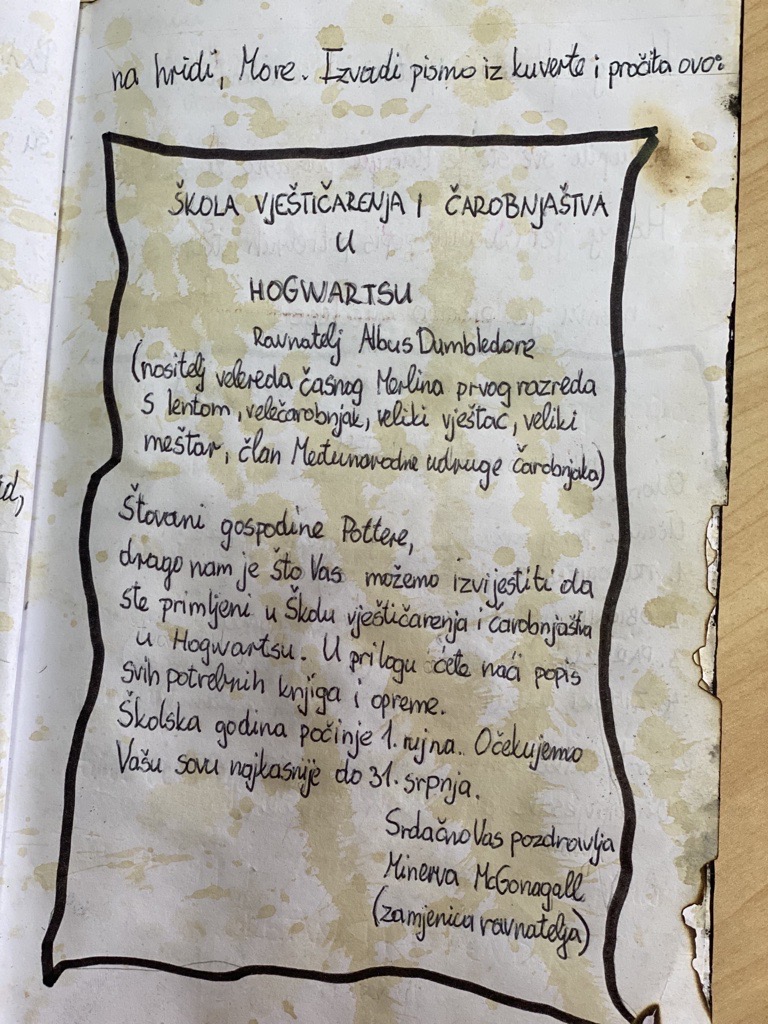 na hridi, More. Izvadi pismo iz kuverte i pročita ovo:
ŠKOLA VJEŠTIČARENJA I ČAROBNJAŠTVA
U
HOGWARTSU
Ravnatelj Albus Dumbledore
(nositelj velereda časnog Merlina prvog razreda
s lentom, velečarobnjak, veliki vještac, veliki
meštar, član Međunarodne udruge čarobnjaka)
Štovani gospodine Pottere,
drago nam je što Vas možemo izvijestiti da
ste primljeni u Školu vještičarenja i čarobnjaštva
u Hogwartsu. U prilogu ćete naći popis
svih potrebnih knjiga i opreme.
Školska godina počinje 1. rujna. Očekujemo
Vašu sovu najkasnije do 31. srpnja.
Srdačno Vas pozdravlja
Minerva McGonagall
(zamjenica ravnatelja)